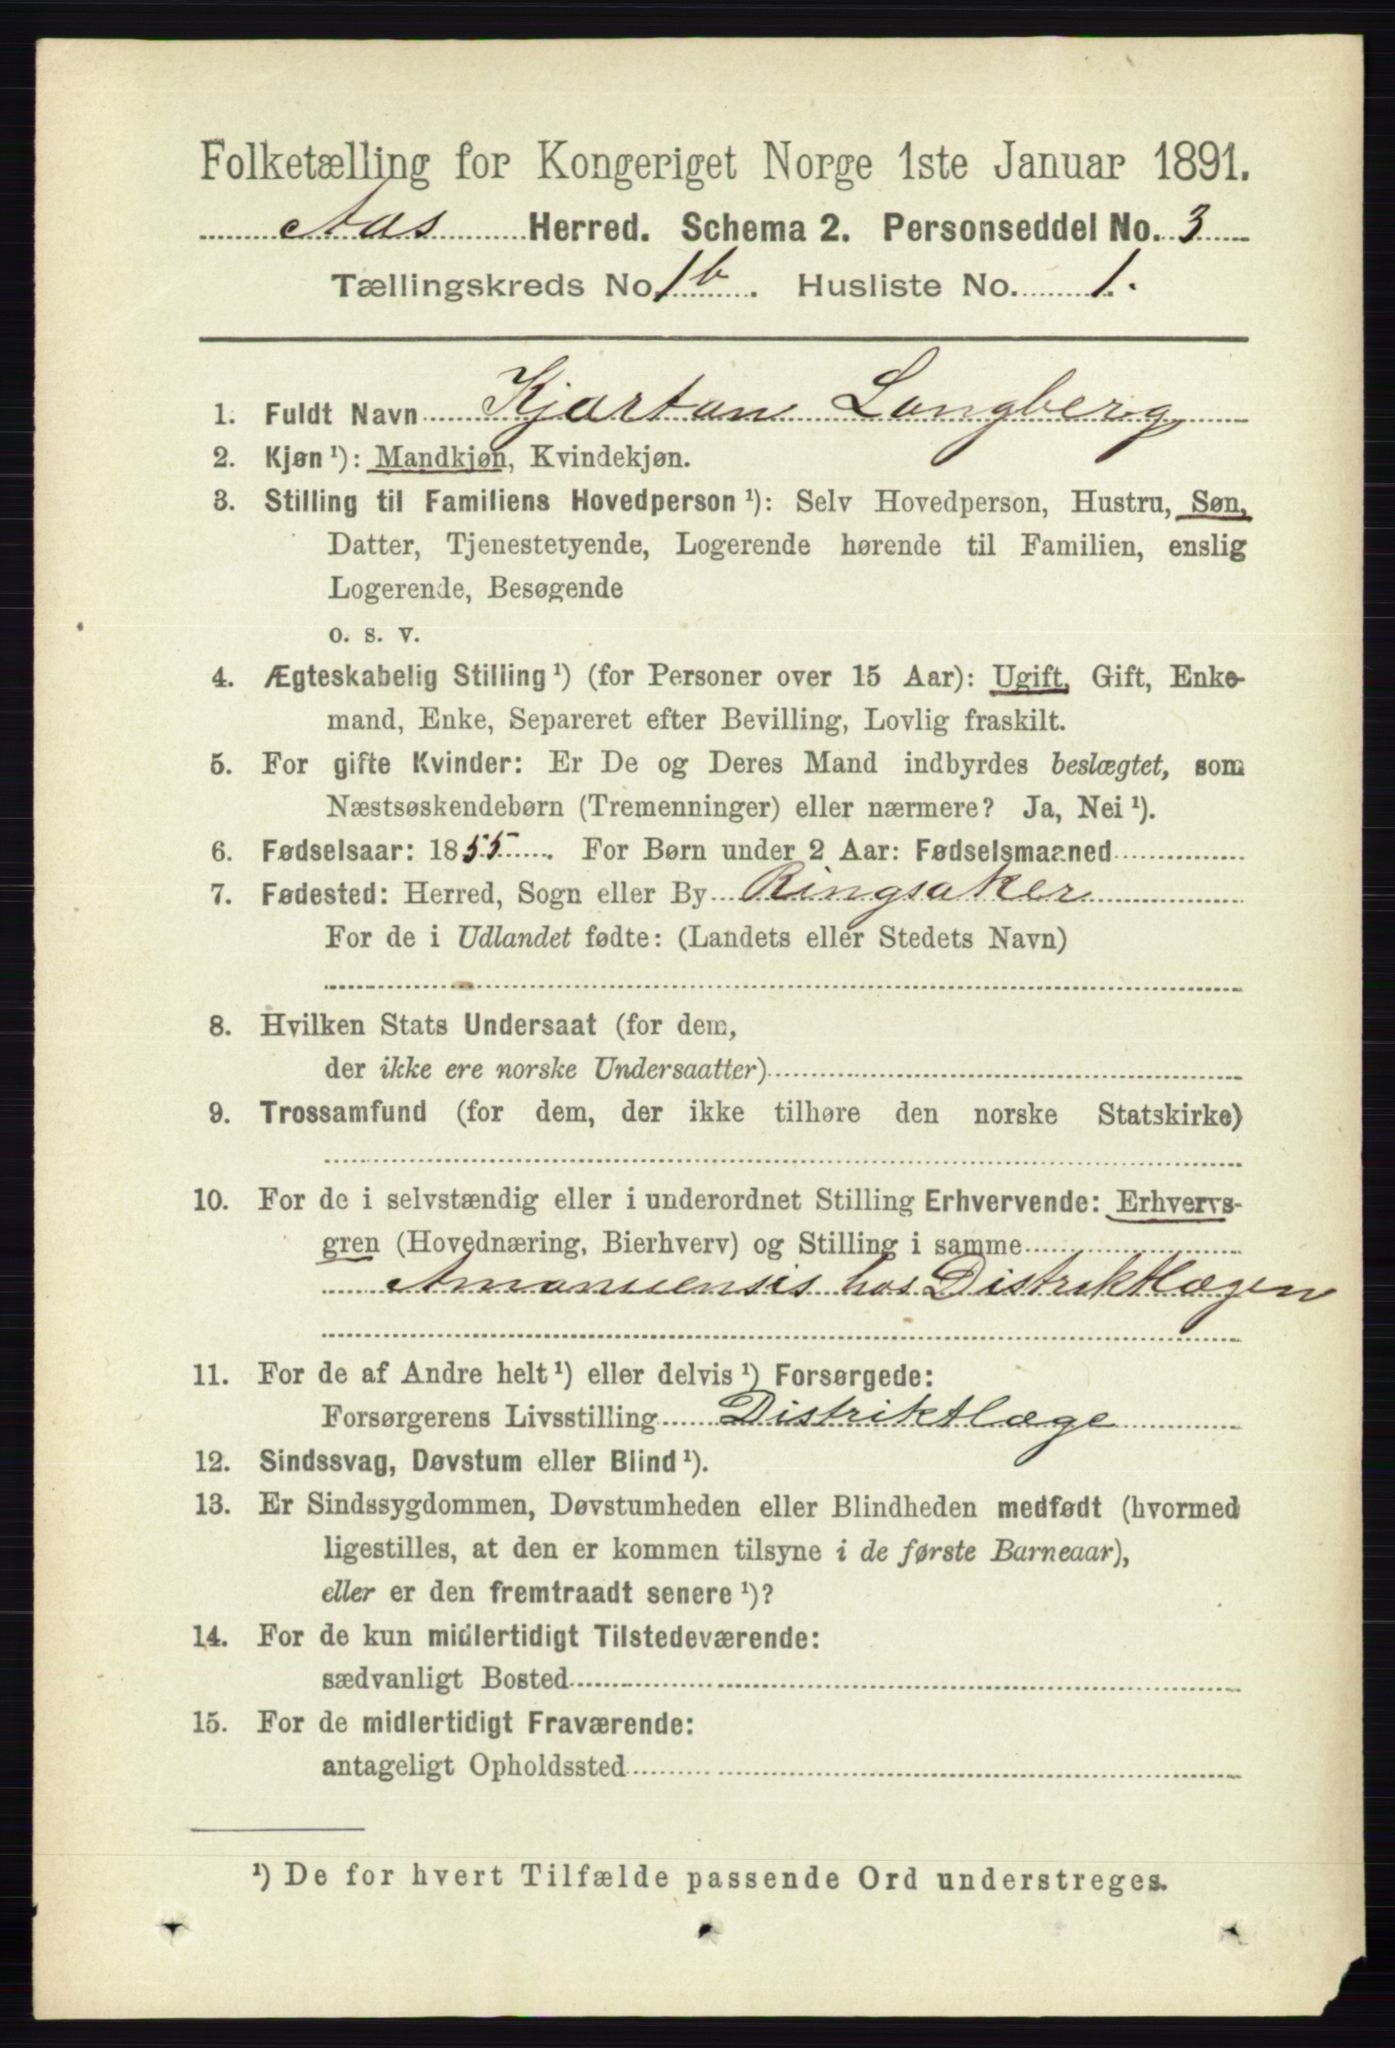 Folketælling for Kongeriget Norge 1ste Januar 1891.
Aas Herred. Schema 2. Personseddel No. 3
Tællingskreds No. 1b. Husliste No. 1.
1. Fuldt Navn Kjartan Langberg
2. Kjøn ¹): Mandkjøn, Kvindekjøn.
3. Stilling til Familiens Hovedperson ¹): Selv Hovedperson, Hustru, Søn,
Datter, Tjenestetyende, Logerende hørende til Familien, enslig
Logerende, Besøgende
o. s. v.
4. Ægteskabelig Stilling ¹) (for Personer over 15 Aar): Ugift, Gift, Enke-
mand, Enke, Separeret efter Bevilling, Lovlig fraskilt.
5. For gifte Kvinder: Er De og Deres Mand indbyrdes beslægtet, som
Næstsøskendebørn (Tremenninger) eller nærmere? Ja, Nei ¹).
6. Fødselsaar: 1855. For Børn under 2 Aar: Fødselsmaaned
7. Fødested: Herred, Sogn eller By Ringsaker
For de i Udlandet fødte: (Landets eller Stedets Navn)
8. Hvilken Stats Undersaat (for dem,
der ikke ere norske Undersaatter)
9. Trossamfund (for dem, der ikke tilhøre den norske Statskirke)
10. For de i selvstændig eller i underordnet Stilling Erhvervende: Erhvervs-
gren (Hovednæring, Bierhverv) og Stilling i samme
Amanuensis hos Distriktlægen
11. For de af Andre helt ¹) eller delvis ¹) Forsørgede:
Forsørgerens Livsstilling Distriktlæge
12. Sindssvag, Døvstum eller Blind ¹).
13. Er Sindssygdommen, Døvstumheden eller Blindheden medfødt (hvormed
ligestilles, at den er kommen tilsyne i de første Barneaar),
eller er den fremtraadt senere ¹)?
14. For de kun midlertidigt Tilstedeværende:
sædvanligt Bosted
15. For de midlertidigt Fraværende:
antageligt Opholdssted
¹) De for hvert Tilfælde passende Ord understreges.